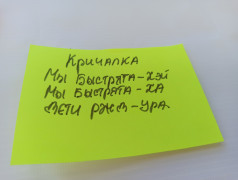 Кричалка
Мы быстрята-хэй
Мы быстрята-ха
Дети РЖД-ура